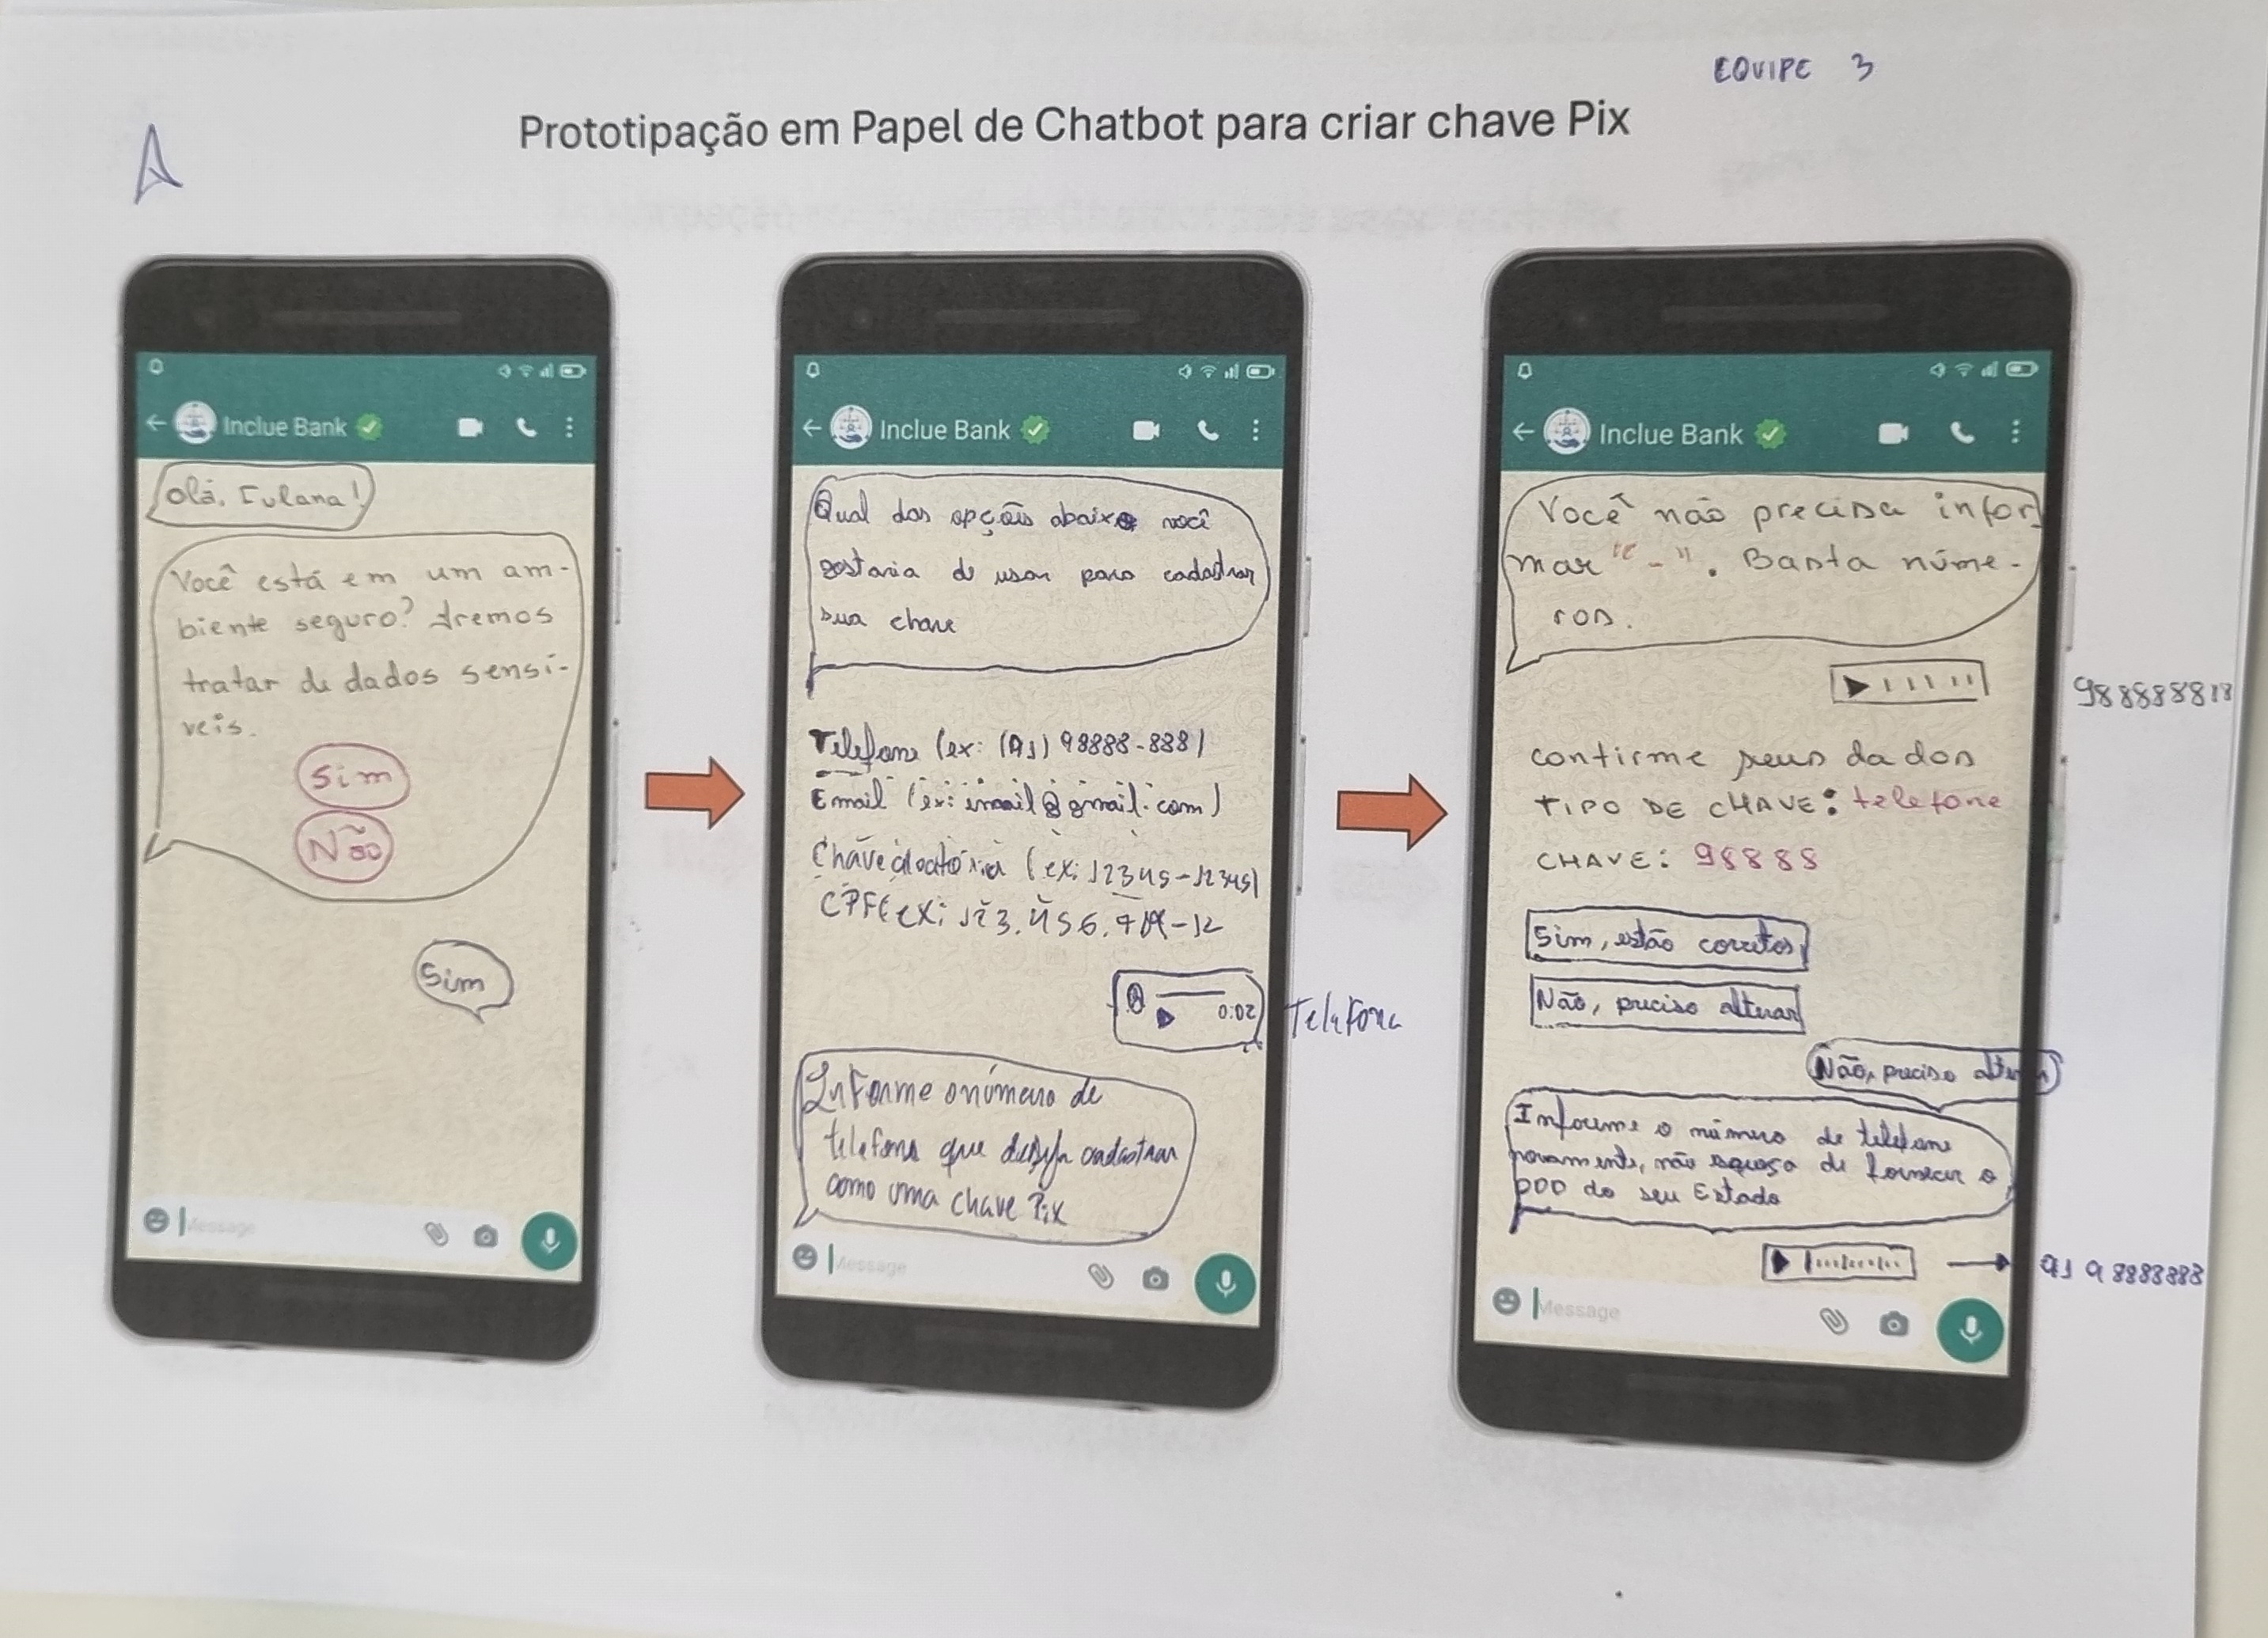 EQUIPE 3
A
Prototipação em Papel de Chatbot para criar chave Pix
Inclue Bank
Olá, Fulana!
Você está em um am-
biente seguro? Iremos
tratar de dados sensí-
veis.
Sim
Não
Sim
Message
Inclue Bank
Qual das opções abaixo você
gostaria de usar para cadastrar
sua chave
Telefone (ex: (91) 98888-888)
Email (ex: email@gmail.com)
Chave aleatória (ex: 12345-12345)
CPF (ex: 123.456.789-12
0:02
Telefone
Informe o número de
telefone que deseja cadastrar
como uma chave Pix
Message
Inclue Bank
Você não precisa infor
mar "-". Basta núme-
ros.
988888888
confirme seus dados
TIPO DE CHAVE: telefone
CHAVE: 98888
Sim, estão corretos
Não, preciso alterar
Não, preciso alterar
Informe o número de telefone
novamente, não esqueça de fornecer o
DDD do seu Estado
91 98888888
Message